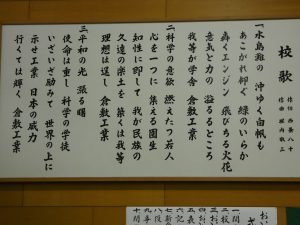 校歌
作詞 西條八十
作曲 堀内敬三
一 水島灘の 沖ゆく白帆も
あこがれ仰ぐ 緑のいらか
轟くエンジン 飛びちる火花
意気と力の 溢るるところ
我等が学舎 倉敷工業
二 科学の意欲 燃えたつ若人
心を一つに 集える園生
知性に即して 我が民族の
久遠の楽土を 築くは我等
理想は遥し 倉敷工業
三 平和の光 漲る曙
使命は重し 科学の学徒
いざいざ励みて 世界の上に
示せ工業 日本の威力
行くては輝く 倉敷工業